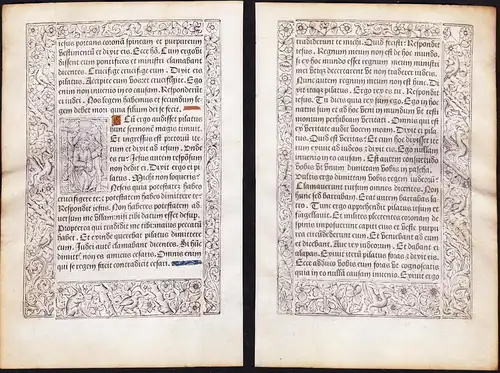 iesus portans coronã spineam et purpureum
vestimentũ et dixit eis. Ecce hõ. Cum ergo vi
dissent eum pontifices et ministri clamabant
dicentes. Crucifige crucifige eum. Dixit eis
pilatus. Accipite eum vos et crucifigite. Ego
enim non inuenio in eo causam. Responderũt
ei iudei. Nos legem habemus et secundum le
gem debet mori quia filium dei se fecit.
Cũ ergo audisset pilatus
hunc sermonē magis timuit.
Et ingressus est pretoriũ ite
rum et dixit ad iesum. Unde
es tu: Jesus autem responsum
non dedit ei. Dixit ergo ei pi
latus. Michi non loqueris:
Nescis quia potestatem habeo
crucifigere te: et potestatem habeo dimittere te:
Respondit iesus. Non haberes potestatem ad
uersum me vllam nisi tibi datum esset desup.
Propterea qui tradidit me tibi maius peccatũ
habet. Et exinde querebat pilatus dimittere
eum. Judei autē clamabant dicentes. Si hũc
dimittis non es amicus cesaris. Omnis enim
qui se regem facit contradicit cesari.
tradiderunt te michi. Quid fecisti: Respondit
iesus. Regnum meum non est de hoc mundo. Si
ex hoc mundo esset regnum meum ministri
mei vtique decertarent vt non traderer iudeis.
Nunc autem regnum meum non est hinc. Di
xit itaque ei pilatus. Ergo rex es tu. Respondit
iesus. Tu dicis quia rex sum ego. Ego in hoc
natus sum et ad hoc veni in mundum vt testi
monium perhibeam veritati. Omnis qui est
ex veritate audit vocem meam. Dixit ei pila
tus. Quid est veritas: Et cum hoc dixisset ite
rum exiuit ad iudeos et dixit eis. Ego nullam
inuenio in eo causam. Est autem consuetudo
vobis vt vnum dimittam vobis in pascha.
Vultis ergo dimittam vobis regem iudeorũ:
Clamauerunt rursum omnes dicentes. Non
hunc sed barraban. Erat autem barrabas la
tro. Tunc ergo apprehendit pilatus iesum et
flagellauit. Et milites plectentes coronam de
spinis imposuerunt capiti eius: et veste purpu
rea circundederunt eum. Et veniebant ad eum
et dicebant. Aue rex iudeorum. Et dabant ei
alapas. Exiuit iterum pilatus foras et dixit eis.
Ecce adduco vobis eum foras vt cognoscatis
quia in eo nullã causam inuenio. Exiuit ergo